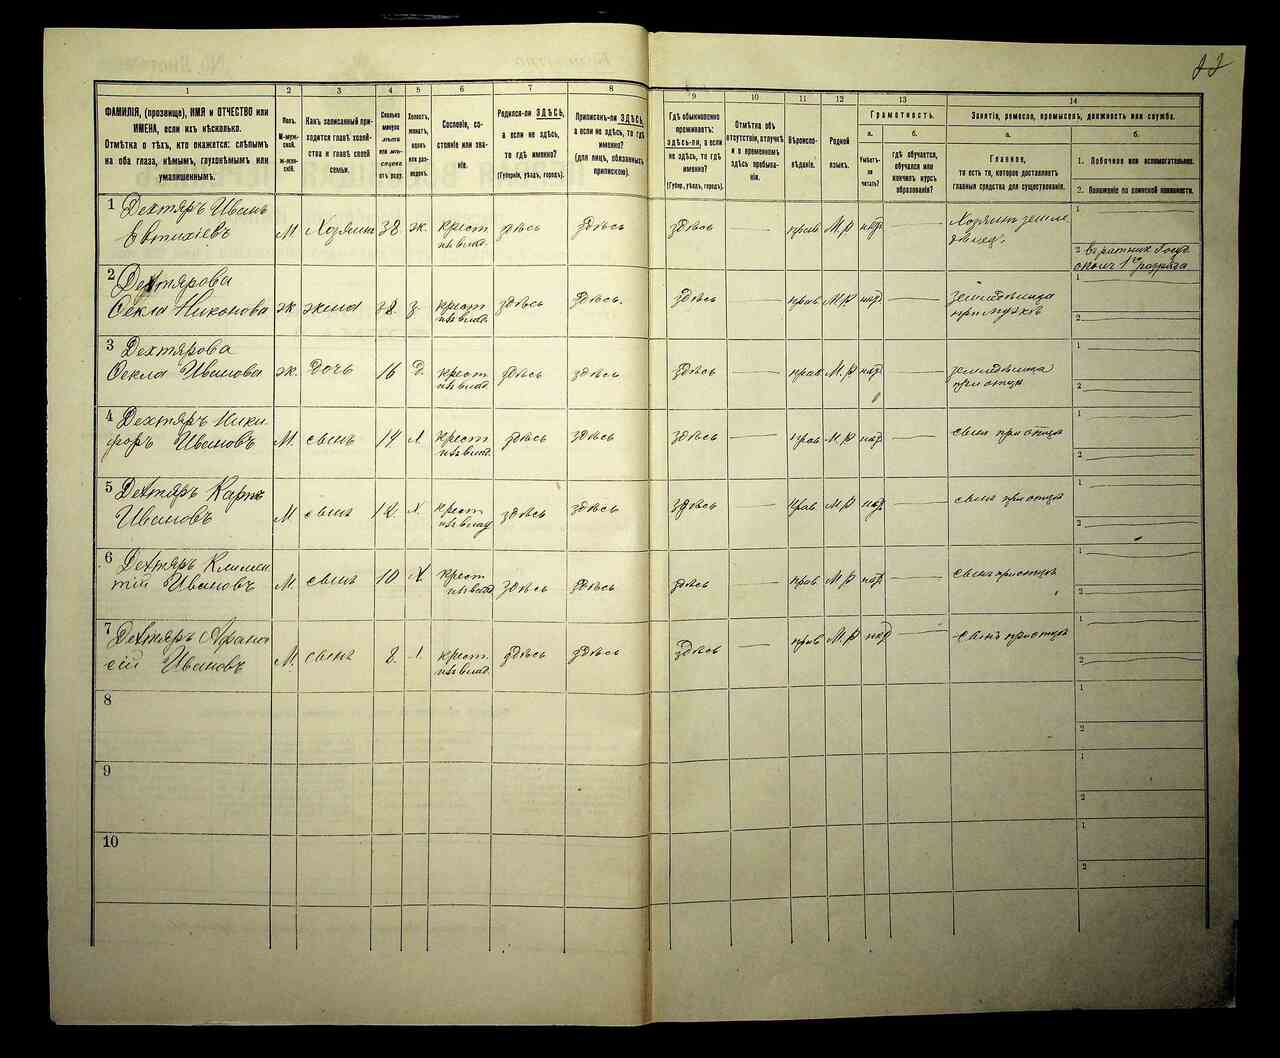 1
2
3
4
5
6
7
8
9
10
11
12
13
14
ФАМИЛІЯ, (прозвище), ИМЯ и ОТЧЕСТВО или
ИМЕНА, если ихъ нѣсколько.
Отмѣтка о тѣхъ, кто окажется: слѣпымъ
на оба глаза, нѣмымъ, глухонѣмымъ или
умалишеннымъ.
Полъ.
М-муж-
ской.
ж-жен-
скій.
Какъ записанный при-
ходится главѣ хозяй-
ства и главѣ своей
семьи.
Сколько
минуло
лѣтъ
или мѣ-
сяцевъ
отъ роду.
Холостъ,
женатъ,
вдовъ
или раз-
веденъ.
Сословіе, со-
стояніе или зва-
ніе.
Родился-ли ЗДѢСЬ,
а если не здѣсь,
то гдѣ именно?
(Губернія, уѣздъ, городъ).
Приписанъ-ли ЗДѢСЬ,
а если не здѣсь, то гдѣ
именно?
(для лицъ, обязанныхъ
припискою).
Гдѣ обыкновенно
проживаетъ:
здѣсь-ли, а если
не здѣсь, то гдѣ
именно?
(Губер., уѣздъ, городъ).
Отмѣтка объ
отсутствіи, отлучкѣ
и о временномъ
здѣсь пребыва-
ніи.
Вѣроиспо-
вѣданіе.
Родной
языкъ.
Грамотность.
а.
Умѣетъ-
ли
читать?
б.
гдѣ обучается,
обучался или
кончилъ курсъ
образованія?
Занятіе, ремесло, промыселъ, должность или служба.
а.
Главное,
то есть то, которое доставляетъ
главныя средства для существованія.
б.
1. Побочное или вспомогательное.
2. Положеніе по воинской повинности.
1 Дехтярь Иванъ
Евтихіевъ М Хозяинъ 38 ж. крест. здѣсь здѣсь здѣсь — прав М.Р нѣт — Хозяинъ земле 1
дѣлец.
2 ратник
1го разряда
2 Дехтярова
Фекла Никонова ж жена ж. крест. здѣсь здѣсь. здѣсь — прав М.Р нѣт — 1
при мужѣ 2
3 Дехтярова
Фекла Иванова ж. дочь 16 Д. крест. здѣсь здѣсь здѣсь — прав М.Р нѣт — 1
при отцѣ 2
4 Дехтярь Ники
форъ Ивановъ М. сынъ 14 х. крест. здѣсь здѣсь здѣсь — прав М.Р нѣт — сынъ при отцѣ 1
2
5 Дехтярь Карпъ
Ивановъ М. сынъ 12. х крест. здѣсь здѣсь здѣсь — прав М.Р нѣт — сынъ при отцѣ 1
2
6 Дехтярь Климен
тій Ивановъ М. сынъ 10 х. крест. здѣсь здѣсь здѣсь — прав М.Р нѣт — сынъ при отцѣ 1
2
7 Дехтярь Афана
сій Ивановъ М. сынъ 8. х. крест. здѣсь здѣсь здѣсь — прав М.Р нѣт — сынъ при отцѣ 1
2
8 1
2
9 1
2
10 1
2